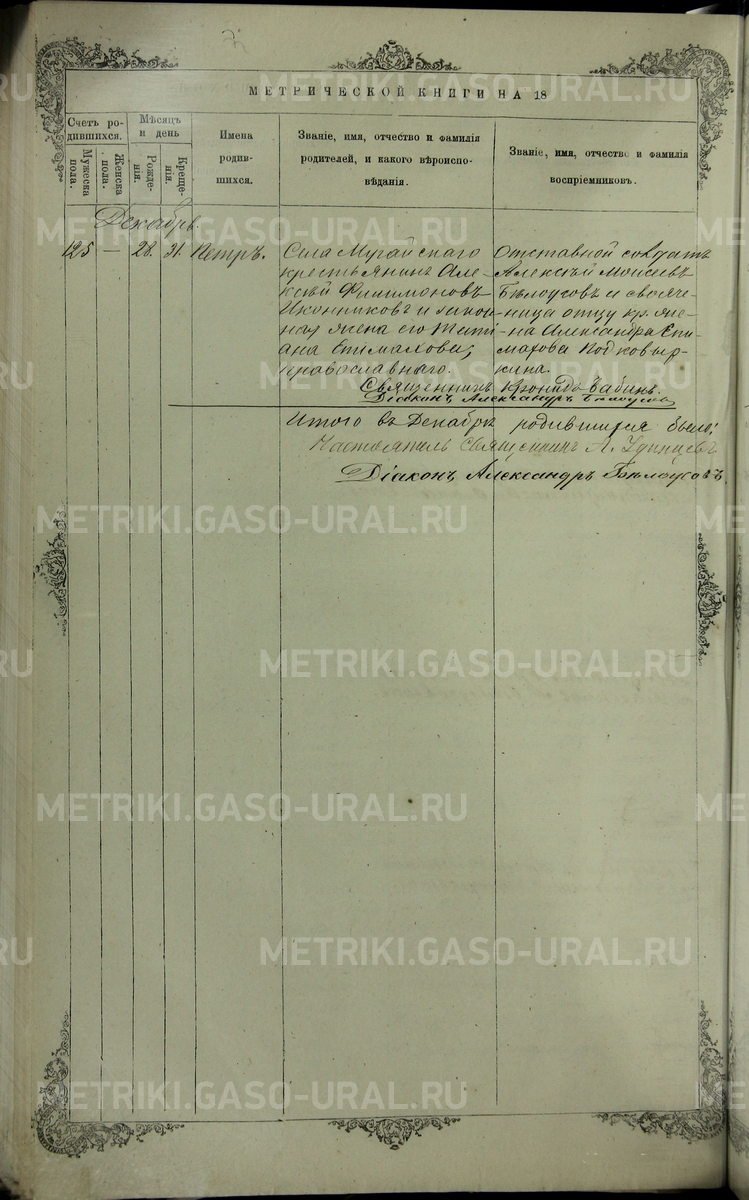 МЕТРИЧЕСКОЙ КНИГИ НА 18
Счетъ ро-
дившихся.
Мужеска
пола.
Женска
пола.
Мѣсяцъ
и день
Рожде-
нія.
Креще-
нія.
Имена
родив-
шихся.
Званіе, имя, отчество и фамилія
родителей, и какого вѣроиспо-
вѣданія.
Званіе, имя, отчество и фамилія
воспріемниковъ.
Декабрь.
125 — 28. 31. Петръ.
Села Мугайскаго
крестьянинъ Але-
ксѣй Филимоновъ
Иконниковъ и закон-
ная жена его Тати-
ана Епімахова;
православнаго.
Отставной солдатъ
Алексѣй Моисеевъ
Бѣлоусовъ и своаче-
ница отцу кр. же-
на Александра Епи-
махова Подковыр-
кина.
Священникъ Кронидъ Бабинъ.
Діаконъ Александръ Бѣлоусовъ
Итого въ Декабрѣ родившихся было:
Настоятель Священникъ А. Удинцевъ
Діаконъ Александръ Бѣлоусовъ.
METRIKI.GASO-URAL.RU